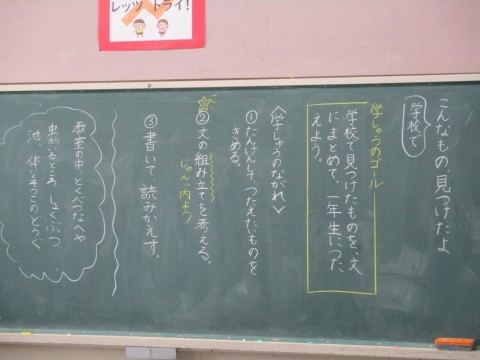 レッツ トライ!
こんなもの、見つけたよ
学校で
学しゅうのゴール
学校で見つけたものを、文
にまとめて、一年生につた
えよう。
〈学しゅうのながれ〉
①たんけんして、つたえたいものを
きめる。
②文の組み立てを考える。
じゅん、内よう
③書いて、読みかえす。
教室の中、とくべつなへや、
虫がいるところ しょくぶつ
池、体いくそうこのどうぐ